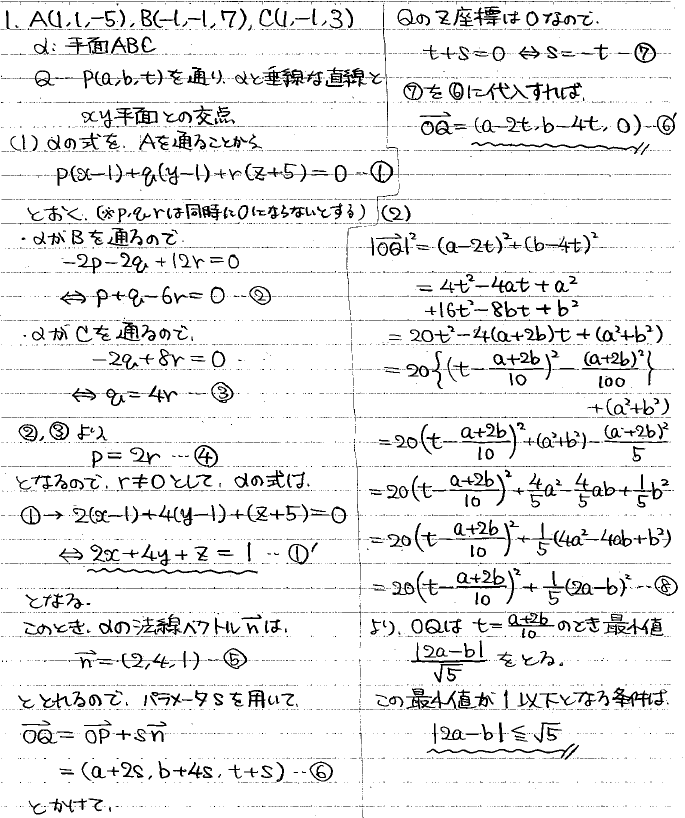 1. A(1,1,-5), B(-1,-1,7), C(1,-1,3)
α: 平面ABC
Q … P(a,b,t)を通り、αと垂線な直線と
xy平面との交点
(1) αの式を、Aを通ることから
p(x-1)+q(y-1)+r(z+5)=0 …①
とおく。(※p,q,rは同時に0にならないとする)
・αがBを通るので
-2p-2q+12r=0
⇔ p+q-6r=0 …②
・αがCを通るので、
-2q+8r=0
⇔ q=4r …③
②,③より
p=2r …④
となるので、r≠0として、αの式は、
①→ 2(x-1)+4(y-1)+(z+5)=0
⇔ 2x+4y+z=1 …①′
となる。
このとき、αの法線ベクトルn→は、
n→=(2,4,1) …⑤
ととれるので、パラメータsを用いて、
OQ→=OP→+sn→
=(a+2s, b+4s, t+s) …⑥
とかけて、
Qのz座標は0なので、
t+s=0 ⇔ s=-t …⑦
⑦を⑥に代入すれば、
OQ→=(a-2t, b-4t, 0) …⑥′
(2)
|OQ→|²=(a-2t)²+(b-4t)²
=4t²-4at+a²
+16t²-8bt+b²
=20t²-4(a+2b)t+(a²+b²)
=20{(t-(a+2b)/10)²-(a+2b)²/100}
+(a²+b²)
=20(t-(a+2b)/10)²+(a²+b²)-(a+2b)²/5
=20(t-(a+2b)/10)²+4/5a²-4/5ab+1/5b²
=20(t-(a+2b)/10)²+1/5(4a²-4ab+b²)
=20(t-(a+2b)/10)²+1/5(2a-b)² …⑧
より、OQは t=(a+2b)/10 のとき最小値
|2a-b|/√5 をとる。
この最小値が1以下となる条件は、
|2a-b|≦√5